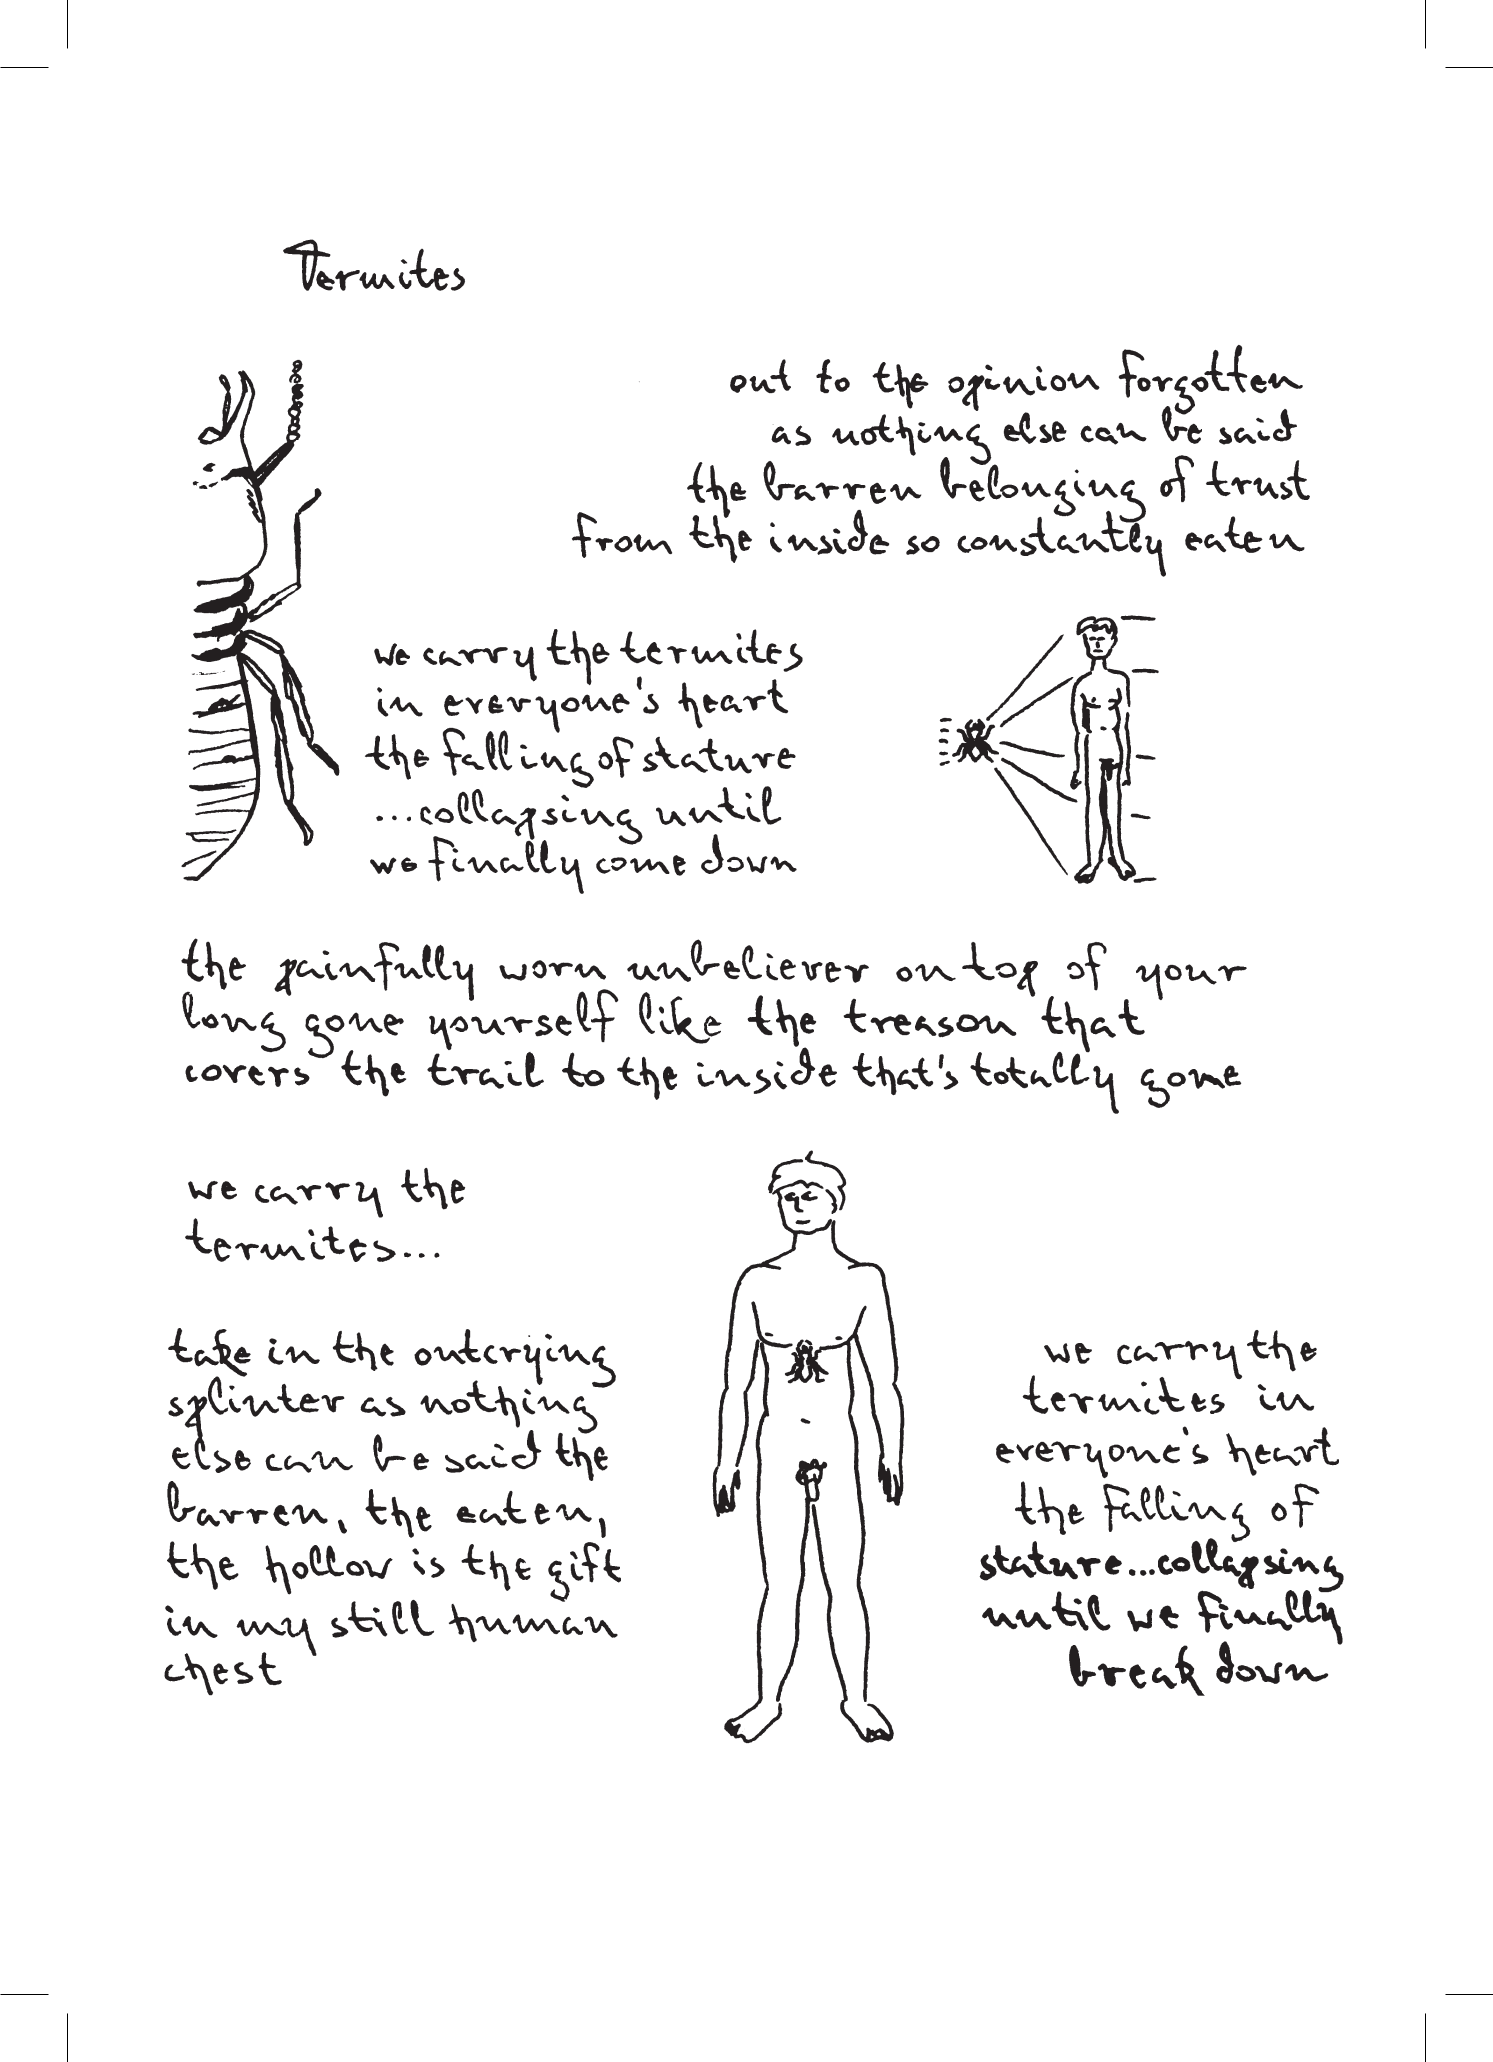 Termites
out to the opinion forgotten
as nothing else can be said
the barren belonging of trust
from the inside so constantly eaten
we carry the termites
in everyone's heart
the falling of stature
...collapsing until
we finally come down
the painfully worn unbeliever on top of your
long gone yourself like the treason that
covers the trail to the inside that's totally gone
we carry the
termites...
take in the outcrying
splinter as nothing
else can be said the
barren, the eaten,
the hollow is the gift
in my still human
chest
we carry the
termites in
everyone's heart
the falling of
stature...collapsing
until we finally
break down